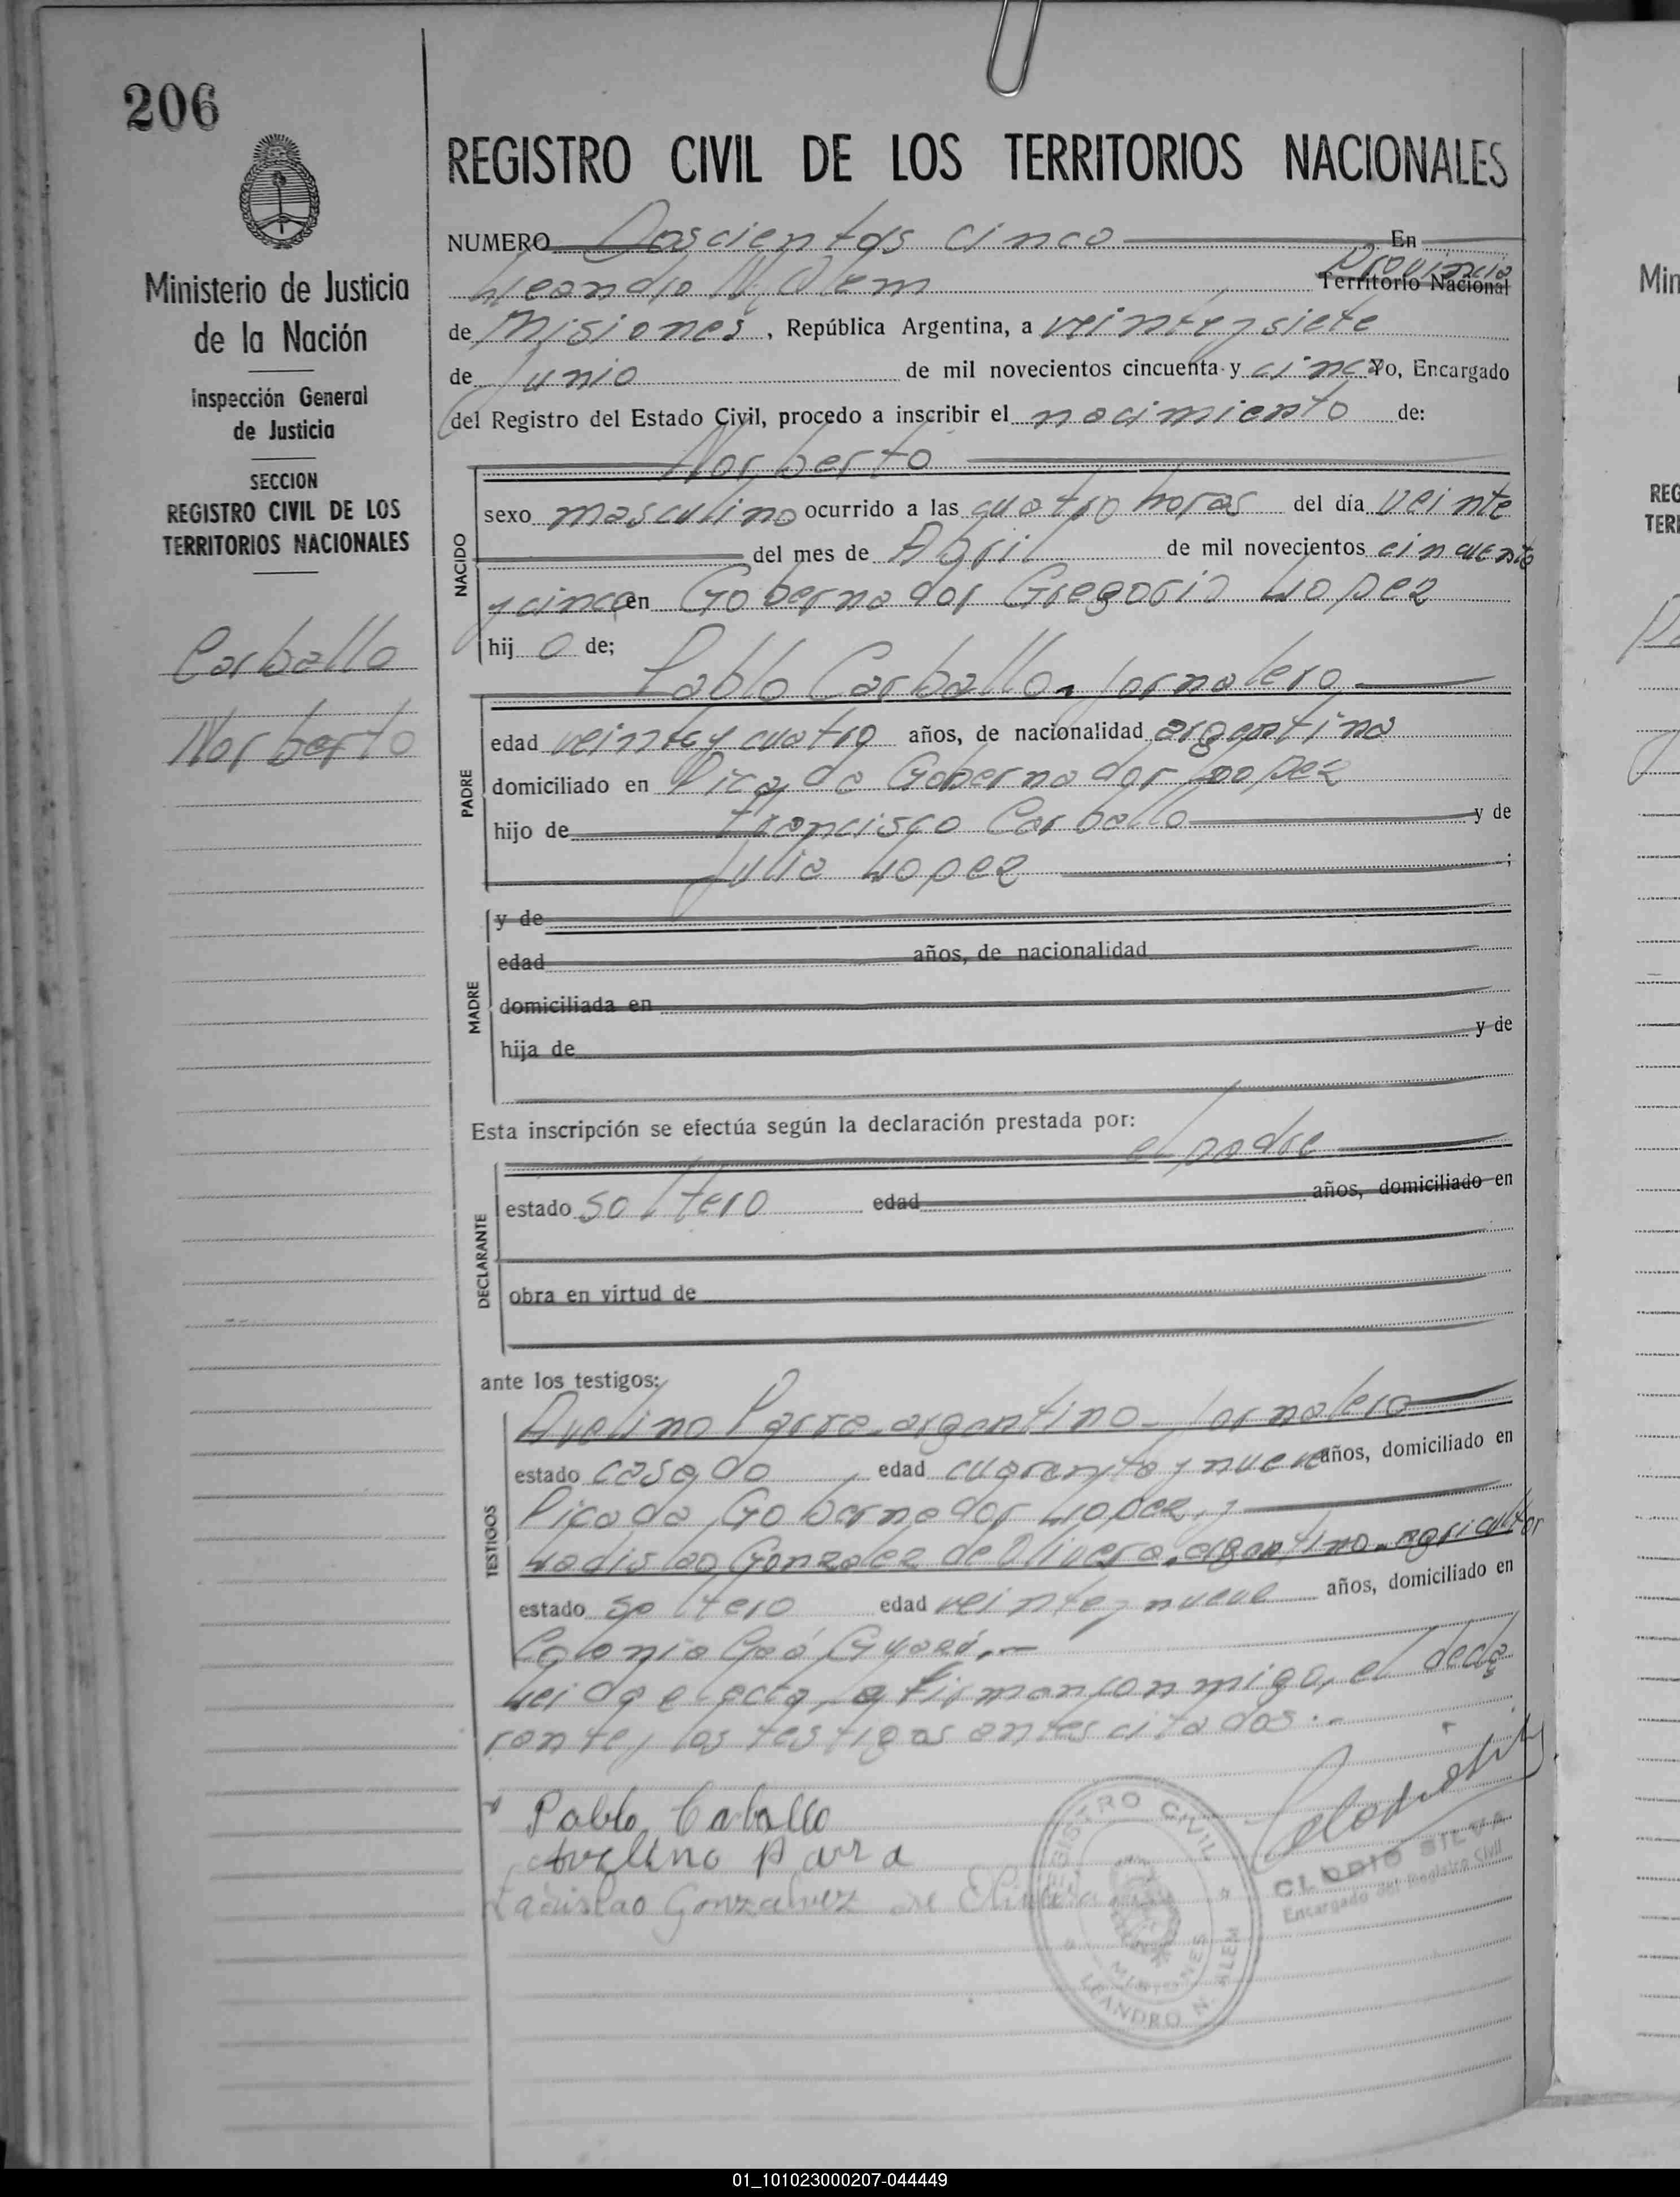 206
Ministerio de Justicia
de la Nación
Inspección General
de Justicia
SECCION
REGISTRO CIVIL DE LOS
TERRITORIOS NACIONALES
Carballo
Norberto
REGISTRO CIVIL DE LOS TERRITORIOS NACIONALES
NUMERO Doscientos cinco En
Leandro N. Alem Provincia Territorio Nacional
de Misiones, República Argentina, a veinte y siete
de Junio de mil novecientos cincuenta y cinco Yo, Encargado
del Registro del Estado Civil, procedo a inscribir el nacimiento de:
Norberto
NACIDO
sexo masculino ocurrido a las cuatro horas del día veinte
del mes de Abril de mil novecientos cincuenta
y cinco en Gobernador Gregorio Lopez
hij o de;
Pablo Carballo. jornalero
PADRE
edad veinte y cuatro años, de nacionalidad argentina
domiciliado en Picada Gobernador Lopez
hijo de Francisco Carballo y de
Julia Lopez ;
MADRE
y de
edad años, de nacionalidad
domiciliada en
hija de y de
Esta inscripción se efectúa según la declaración prestada por:
el padre
DECLARANTE
estado soltero edad años, domiciliado en
obra en virtud de
ante los testigos:
TESTIGOS
Avelino Parra. argentino - jornalero
estado casado edad cuarenta y nueve años, domiciliado en
Picada Gobernador Lopez, y
Ladislao Gonzalez de Olivera. argentino. agricultor
estado soltero edad veinte y nueve años, domiciliado en
Colonia Caá Guazú.-
Leida el acta, la firman conmigo, el decla
rante y los testigos antes citados.-
Pablo Caballo
Avelino Parra
Ladislao Gonzalvez de Olivera
REGISTRO CIVIL
MISIONES
LEANDRO N. ALEM
CLODIO SILVA
Encargado del Registro Civil
Min
REG
TERI
01_101023000207-044449